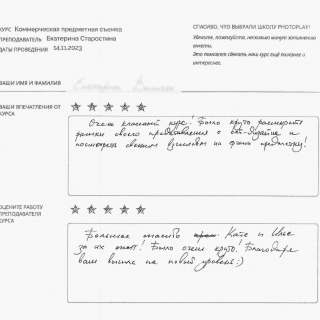 КУРС Коммерческая предметная съемка
ПРЕПОДАВАТЕЛЬ Екатерина Старостина
ДАТЫ ПРОВЕДЕНИЯ 14.11.2023
СПАСИБО, ЧТО ВЫБРАЛИ ШКОЛУ PHOTOPLAY!
Уделите, пожалуйста, несколько минут заполнению
анкеты.
Это поможет сделать наш курс ещё полезнее и
интереснее.
ВАШИ ИМЯ И ФАМИЛИЯ
ВАШИ ВПЕЧАТЛЕНИЯ ОТ
КУРСА
Очень классный курс! Было круто расширить
рамки своего представления о сет-дизайне и
посмотреть свежим взглядом на фоны предметки!
ОЦЕНИТЕ РАБОТУ
ПРЕПОДАВАТЕЛЯ
КУРСА
Большое спасибо Кате и Илье
за их опыт! Было очень круто! Благодаря
вам вышла на новый уровень :)